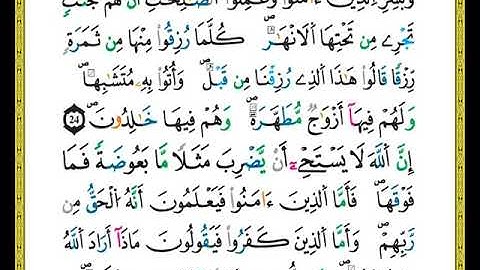 وَبَشِّرِ اِ۬لذِينَ ءَامَنُواْ وَعَمِلُواْ اُ۬لصَّٰلِحَٰتِ أَنَّ لَهُمْ جَنَّٰتٖ
تَجْرِے مِن تَحْتِهَا اَ۬لَانْهَٰرُۖ كُلَّمَا رُزِقُواْ مِنْهَا مِن ثَمَرَةٖ
رِّزْقاٗ قَالُواْ هَٰذَا اَ۬لذِے رُزِقْنَا مِن قَبْلُۖ وَأُتُواْ بِهِۦ مُتَشَٰبِهاٗۖ
وَلَهُمْ فِيهَآ أَزْوَٰجٞ مُّطَهَّرَةٞۖ وَهُمْ فِيهَا خَٰلِدُونَۖ 24
إِنَّ اَ۬للَّهَ لَا يَسْتَحْيِۦٓ أَنْ يَّضْرِبَ مَثَلاٗ مَّا بَعُوضَةٗ فَمَا
فَوْقَهَاۖ فَأَمَّا اَ۬لذِينَ ءَامَنُواْ فَيَعْلَمُونَ أَنَّهُ اُ۬لْحَقُّ مِن
رَّبِّهِمْۖ وَأَمَّا اَ۬لذِينَ كَفَرُواْ فَيَقُولُونَ مَاذَآ أَرَادَ اَ۬للَّهُ